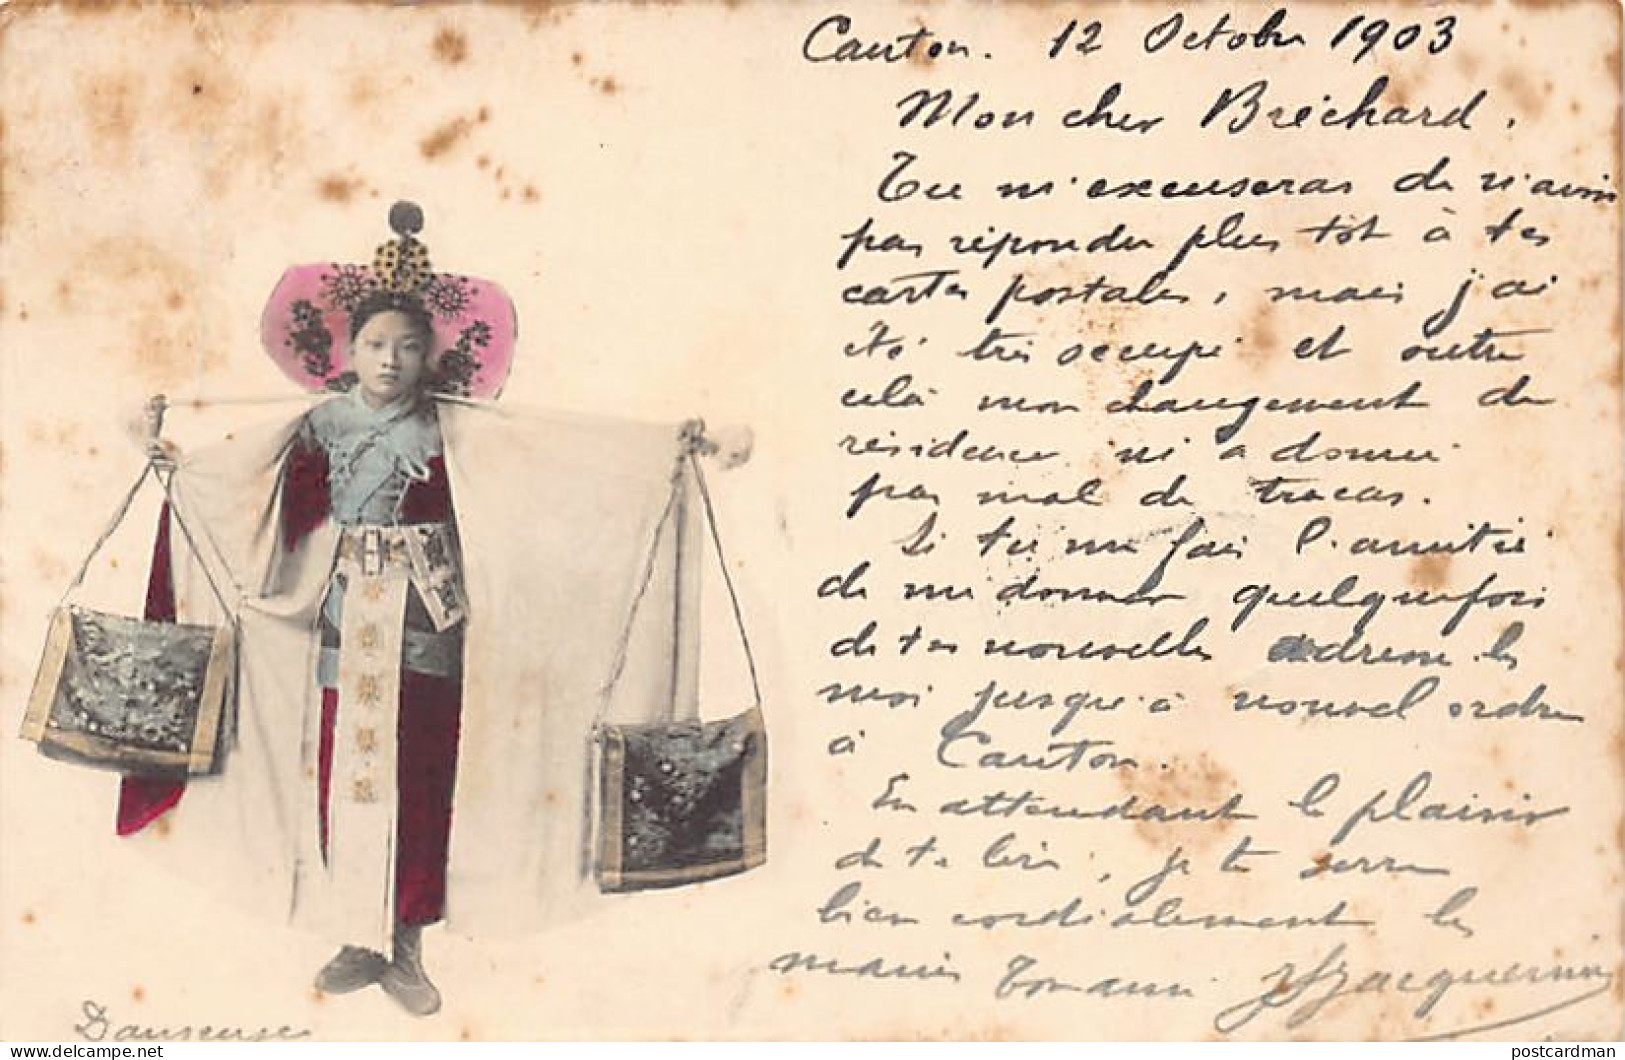 Canton. 12 Octobre 1903
Mon cher Bréchard.
Tu m'excuseras de n'avoir
pas répondu plus tôt à tes
cartes postales, mais j'ai
été très occupé et outre
celà mon changement de
résidence m'a donné
pas mal de tracas.
Si tu me fais l'amitié
de me donner quelquefois
de tes nouvelles adresse les
moi jusqu'à nouvel ordre
à Canton.
En attendant le plaisir
de te lire, je te serre
bien cordialement les
mains Ton ami Jacquemin
Danseuse
postcardman